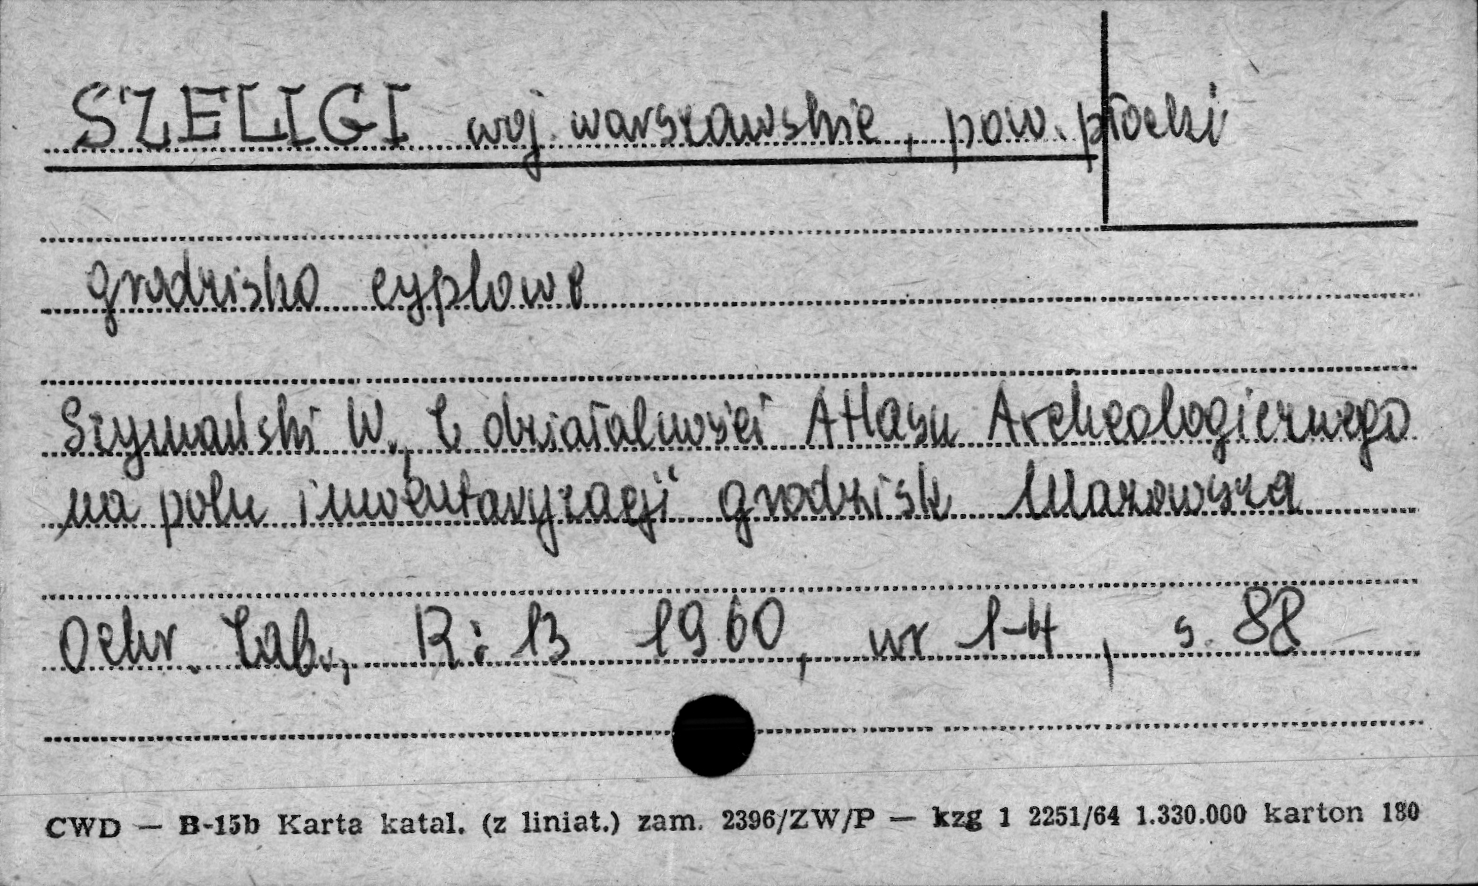 SZELIGI woj. warszawskie, pow. płocki
grodzisko cyplowe
Szymański W., Z działalności Atlasu Archeologicznego
na polu inwentaryzacji grodzisk Mazowsza
Ochr. Zab., R: 13 1960, nr 1-4, s. 88
CWD — B-15b Karta katal. (z liniat.) zam. 2396/ZW/P — kzg 1 2251/64 1.330.000 karton 180